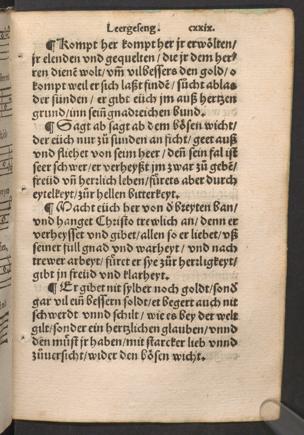 Leergeseng. cxxix.
¶ Kompt her kompt her jr erwölten/
jr elenden vnd gequelten / die jr dem her⸗
ren dienē wolt/ vm̄ vil bessers den gold/ o
kompt weil er sich laßt findē/ sůcht ablas
der sünden / er gibt eüch jm auß hertzen
grund/ inn sein̄ gnadreichen bund.
¶ Sagt ab sagt ab dem bösen wicht/
der eüch nur zů sünden an ficht/ geet auß
vnd fliehet von seim heer / den̄ sein fal ist
seer schwer/ er verheyßt jm zwar zů gebē/
freüd vn̄ herrlich leben/ fürets aber durch
eytelkeyt/ zůr hellen bitterkeyt.
¶ Macht eüch her von d̄ breyten ban/
vnd hanget Christo trewlich an/ denn er
verheysset vnd gibet/ allen so er liebet/ vß
seiner full gnad vnd warheyt/ vnd nach
trewer arbeyt/ füret er sye zůr herligkeyt/
gibt jn freüd vnd klarheyt.
¶ Er gibet nit sylber noch goldt/ sond̄
gar vil ein̄ bessern soldt/ er begert auch nit
schwerdt vnnd schilt/ wie es bey der welt
gilt/ sonder ein hertzlichen glauben/ vnnd
den můst jr haben/ mit starcker lieb vnnd
zůuersicht/ wider den bösen wicht.